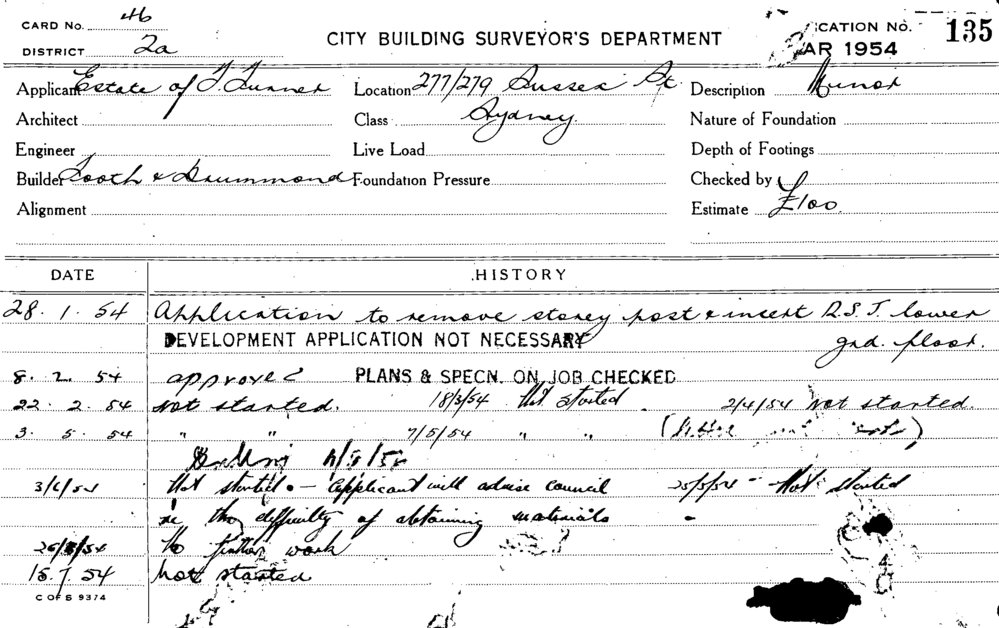 CARD No. 46
DISTRICT 2a
CITY BUILDING SURVEYOR'S DEPARTMENT
ICATION No. 135
AR 1954
Applicant Estate of J. Turner Location 277/279 Sussex St Description Minor
Architect Class Sydney. Nature of Foundation
Engineer Live Load Depth of Footings
Builder Tooth & Drummond Foundation Pressure Checked by
Alignment Estimate £100.
DATE HISTORY
28. 1. 54 Application to remove storey post & insert R.S.J. lower
DEVELOPMENT APPLICATION NOT NECESSARY grd. floor.
8. 2. 54 approved PLANS & SPECN. ON JOB CHECKED
22. 2. 54 not started. 18/3/54 Not started. 2/4/54 not started.
3. 5. 54 " " 7/5/54 " "
3/6/54 Not started. - Applicant will advise council 25/5/54 - Not started
re the difficulty of obtaining materials
No further work
15. 7. 54 not started
C OF S 9374